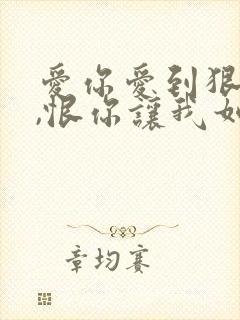 愛你愛到狠
,恨你讓我如
章均賽